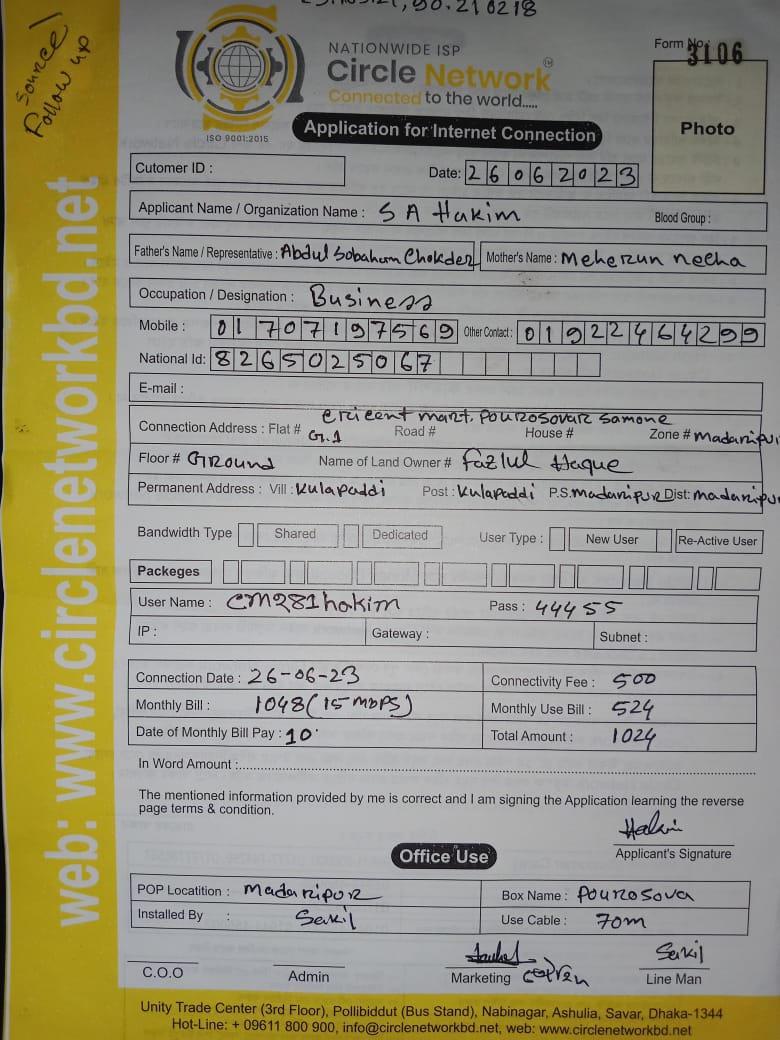 90.210218
Source /
Follow up
NATIONWIDE ISP
Circle Network
Connected to the world.....
ISO 9001:2015
Form No.: 3106
Photo
Application for Internet Connection
Cutomer ID :
Date: 26062023
Applicant Name / Organization Name : S A Hakim Blood Group :
Father's Name / Representative : Abdul Sobahan Chokder Mother's Name : Meherun necha
Occupation / Designation : Business
Mobile : 01707197569 Other Contact : 01922464299
National Id: 8265025067
E-mail :
ericent mart. Pourosovar samone
Connection Address : Flat # G.1 Road # House # Zone # madaripur
Floor # Ground Name of Land Owner # Fazlul Haque
Permanent Address : Vill : Kulapaddi Post : Kulapaddi P.S. madaripur Dist: madaripur
Bandwidth Type Shared Dedicated User Type : New User Re-Active User
Packeges
User Name : CM281hakim Pass : 44455
IP : Gateway : Subnet :
Connection Date : 26-06-23 Connectivity Fee : 500
Monthly Bill : 1048 (15 mbps) Monthly Use Bill : 524
Date of Monthly Bill Pay : 10 Total Amount : 1024
In Word Amount :
The mentioned information provided by me is correct and I am signing the Application learning the reverse
page terms & condition.
Hakim
Applicant's Signature
Office Use
POP Locatition : Madaripur Box Name : Pourosova
Installed By : Sakil Use Cable : 70m
Sakil
C.O.O Admin Marketing Line Man
Unity Trade Center (3rd Floor), Pollibiddut (Bus Stand), Nabinagar, Ashulia, Savar, Dhaka-1344
Hot-Line: + 09611 800 900, info@circlenetworkbd.net, web: www.circlenetworkbd.net
web: www.circlenetworkbd.net